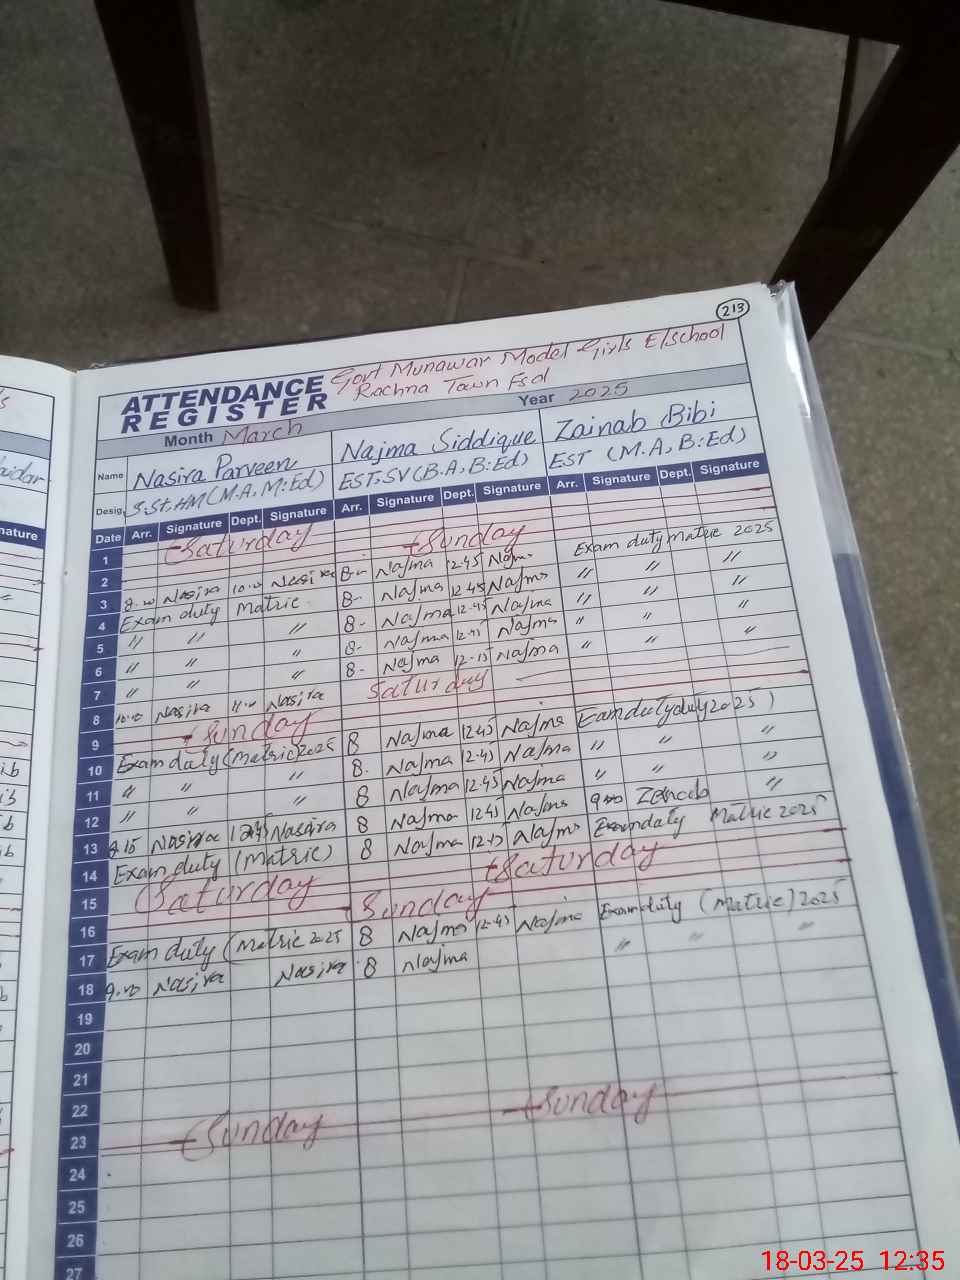 213
ATTENDANCE REGISTER Govt Munawar Model Girls E/School
Rachna Town Fsd
Month March Year 2025
Name Nasira Parveen Najma Siddique Zainab Bibi
Desig. S.St, HM (M.A, M:Ed) EST, SV (B.A, B:Ed) EST (M.A, B:Ed)
Date Arr. Signature Dept. Signature Arr. Signature Dept. Signature Arr. Signature Dept. Signature
1 Saturday
2 Sunday
3 8.00 Nasira 10.00 Nasira 8- Najma 12.45 Najma Exam duty Matric 2025
4 Exam duty Matric 8- Najma 12.45 Najma " " "
5 " " " 8- Najma 12.45 Najma " " "
6 " " " 8- Najma 12.45 Najma " " "
7 " " " 8- Najma 12.15 Najma " " "
8 10.00 Nasira 11.00 Nasira Saturday
9 Sunday
10 Exam duty (Matric) 2025 8 Najma 12.45 Najma Exam duty duty 2025)
11 " " " 8. Najma 12.45 Najma " " "
12 " " " 8 Najma 12.45 Najma " " "
13 8.15 Nasira 12.45 Nasira 8 Najma 12.45 Najma 9.00 Zainab "
14 Exam duty (Matric) 8 Najma 12.45 Najma Exam duty Matric 2025
15 Saturday Saturday
16 Sunday
17 Exam duty (Matric 2025 8 Najma 12.45 Najma Exam duty (Matric) 2025
18 9.00 Nasira Nasira 8 Najma " " "
19
20
21
22
23 Sunday Sunday
24
25
26
27
18-03-25 12:35